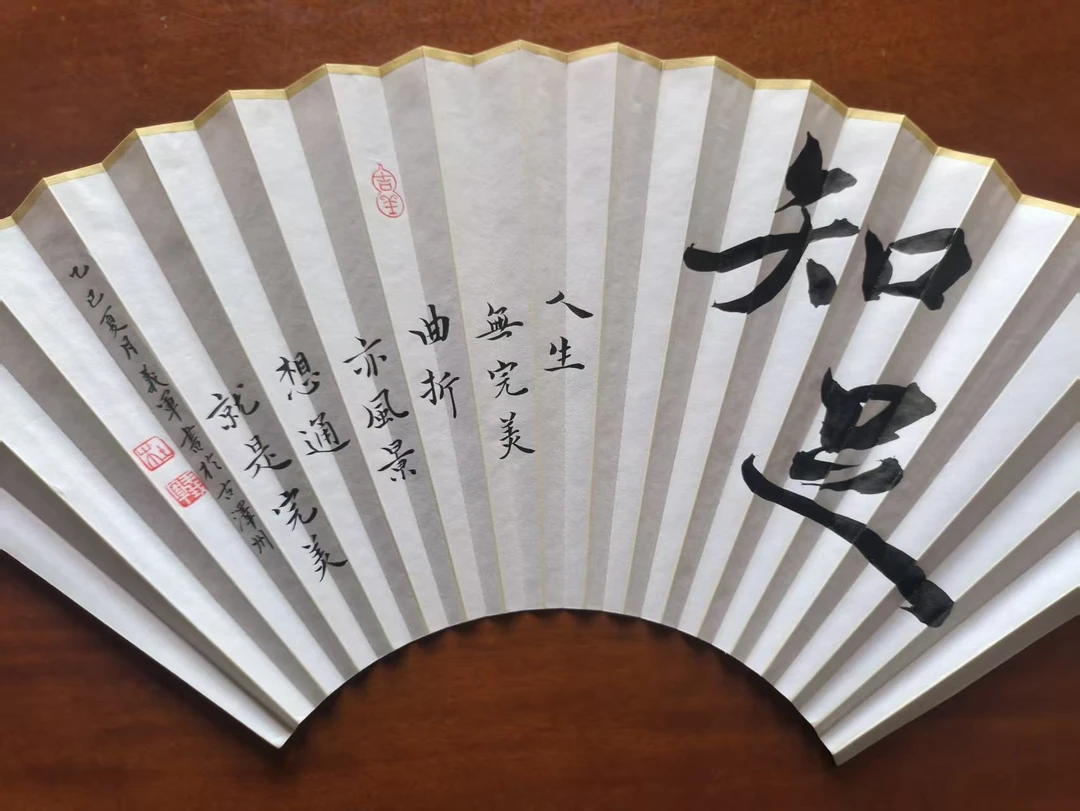 知足
人生
無完美
曲折
亦風景
想通
就是完美
乙巳夏月義軍書於古澤州
吉羊